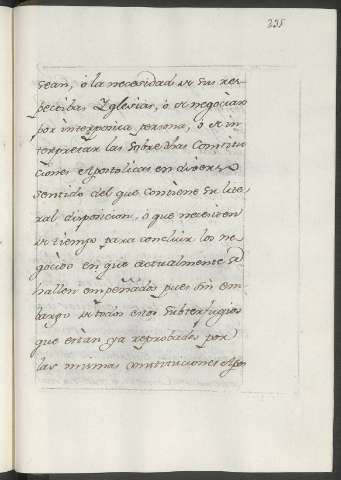 235
sean, ò la necesidad de sus res-
pectibas Yglesias, ò de negociar
por interposita persona, ò de in-
terpretar las sobredhas Constitu-
ciones Apostolicas en diverso
sentido del que contiene su lite-
ral disposicion, o que necesiten
de tiempo para concluir los ne-
gocios en que actualmente se
hallen empeñados pues sin em-
bargo de todos estos subterfugios
que están ya reprobados por
las mismas constituciones Apos